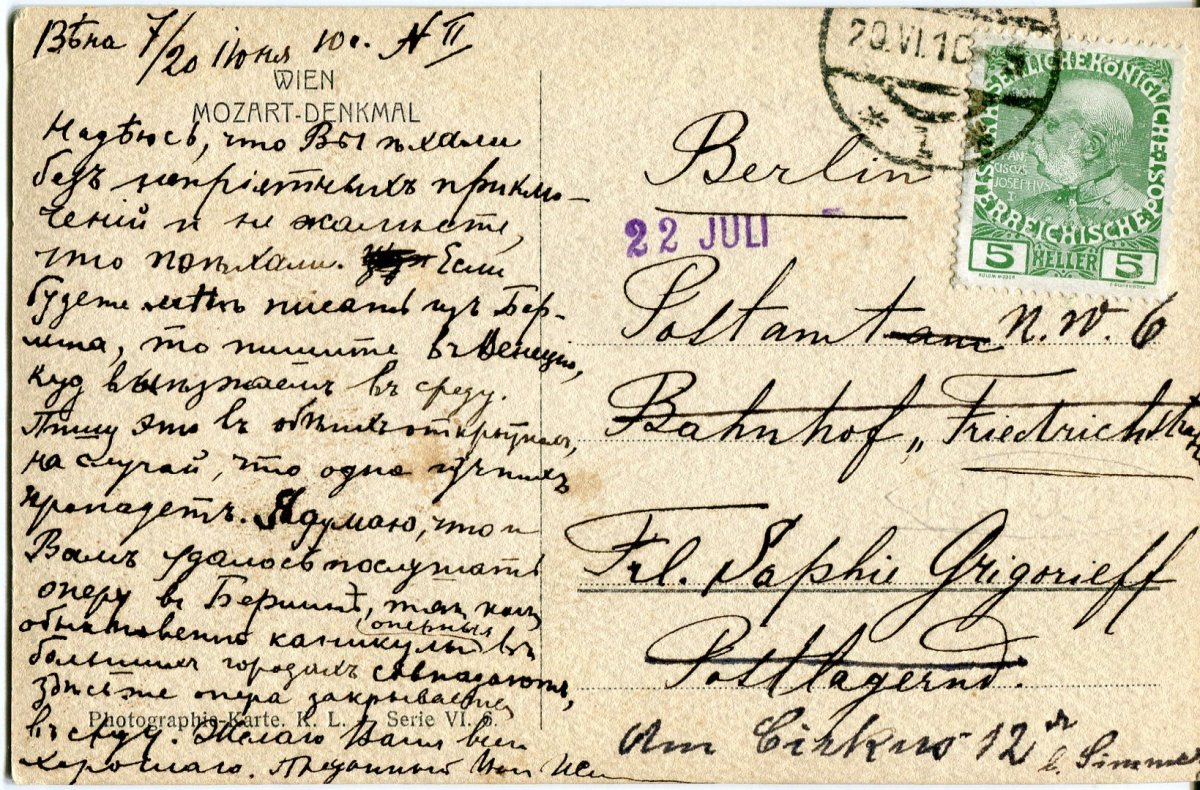 Вѣна 7/20 Июня 10 г. N II
WIEN
MOZART-DENKMAL
Надѣюсь, что Вы ѣхали
безъ непріятныхъ приклю-
ченій и не жалѣете,
что поѣхали. Если
будете мнѣ писать изъ Бер-
лина, то пишите въ Венецію,
куда выѣзжаемъ въ среду.
Пишу это въ обѣихъ открыткахъ,
на случай, что одна изъ нихъ
пропадетъ. Я думаю, что и
Вамъ удалось послушать
оперу въ Берлинѣ, такъ какъ
обыкновенно каникулы оперныя въ
большихъ городахъ совпадаютъ,
здѣсь же опера закрывается
въ среду. Желаю Вамъ всего
хорошаго. Преданный Вам
Photographie-Karte. K. L. Serie VI. 6.
20.VI.10
1
KAISERLICHE KÖNIGLICHE
ÖSTERREICHISCHE
5 HELLER 5
Berlin
22 JULI
Postamt N. W. 6
Bahnhof „Friedrichstra
Frl. Sophie Grigorieff
Postlagernd.
Am Cirkus 12
b. Simme